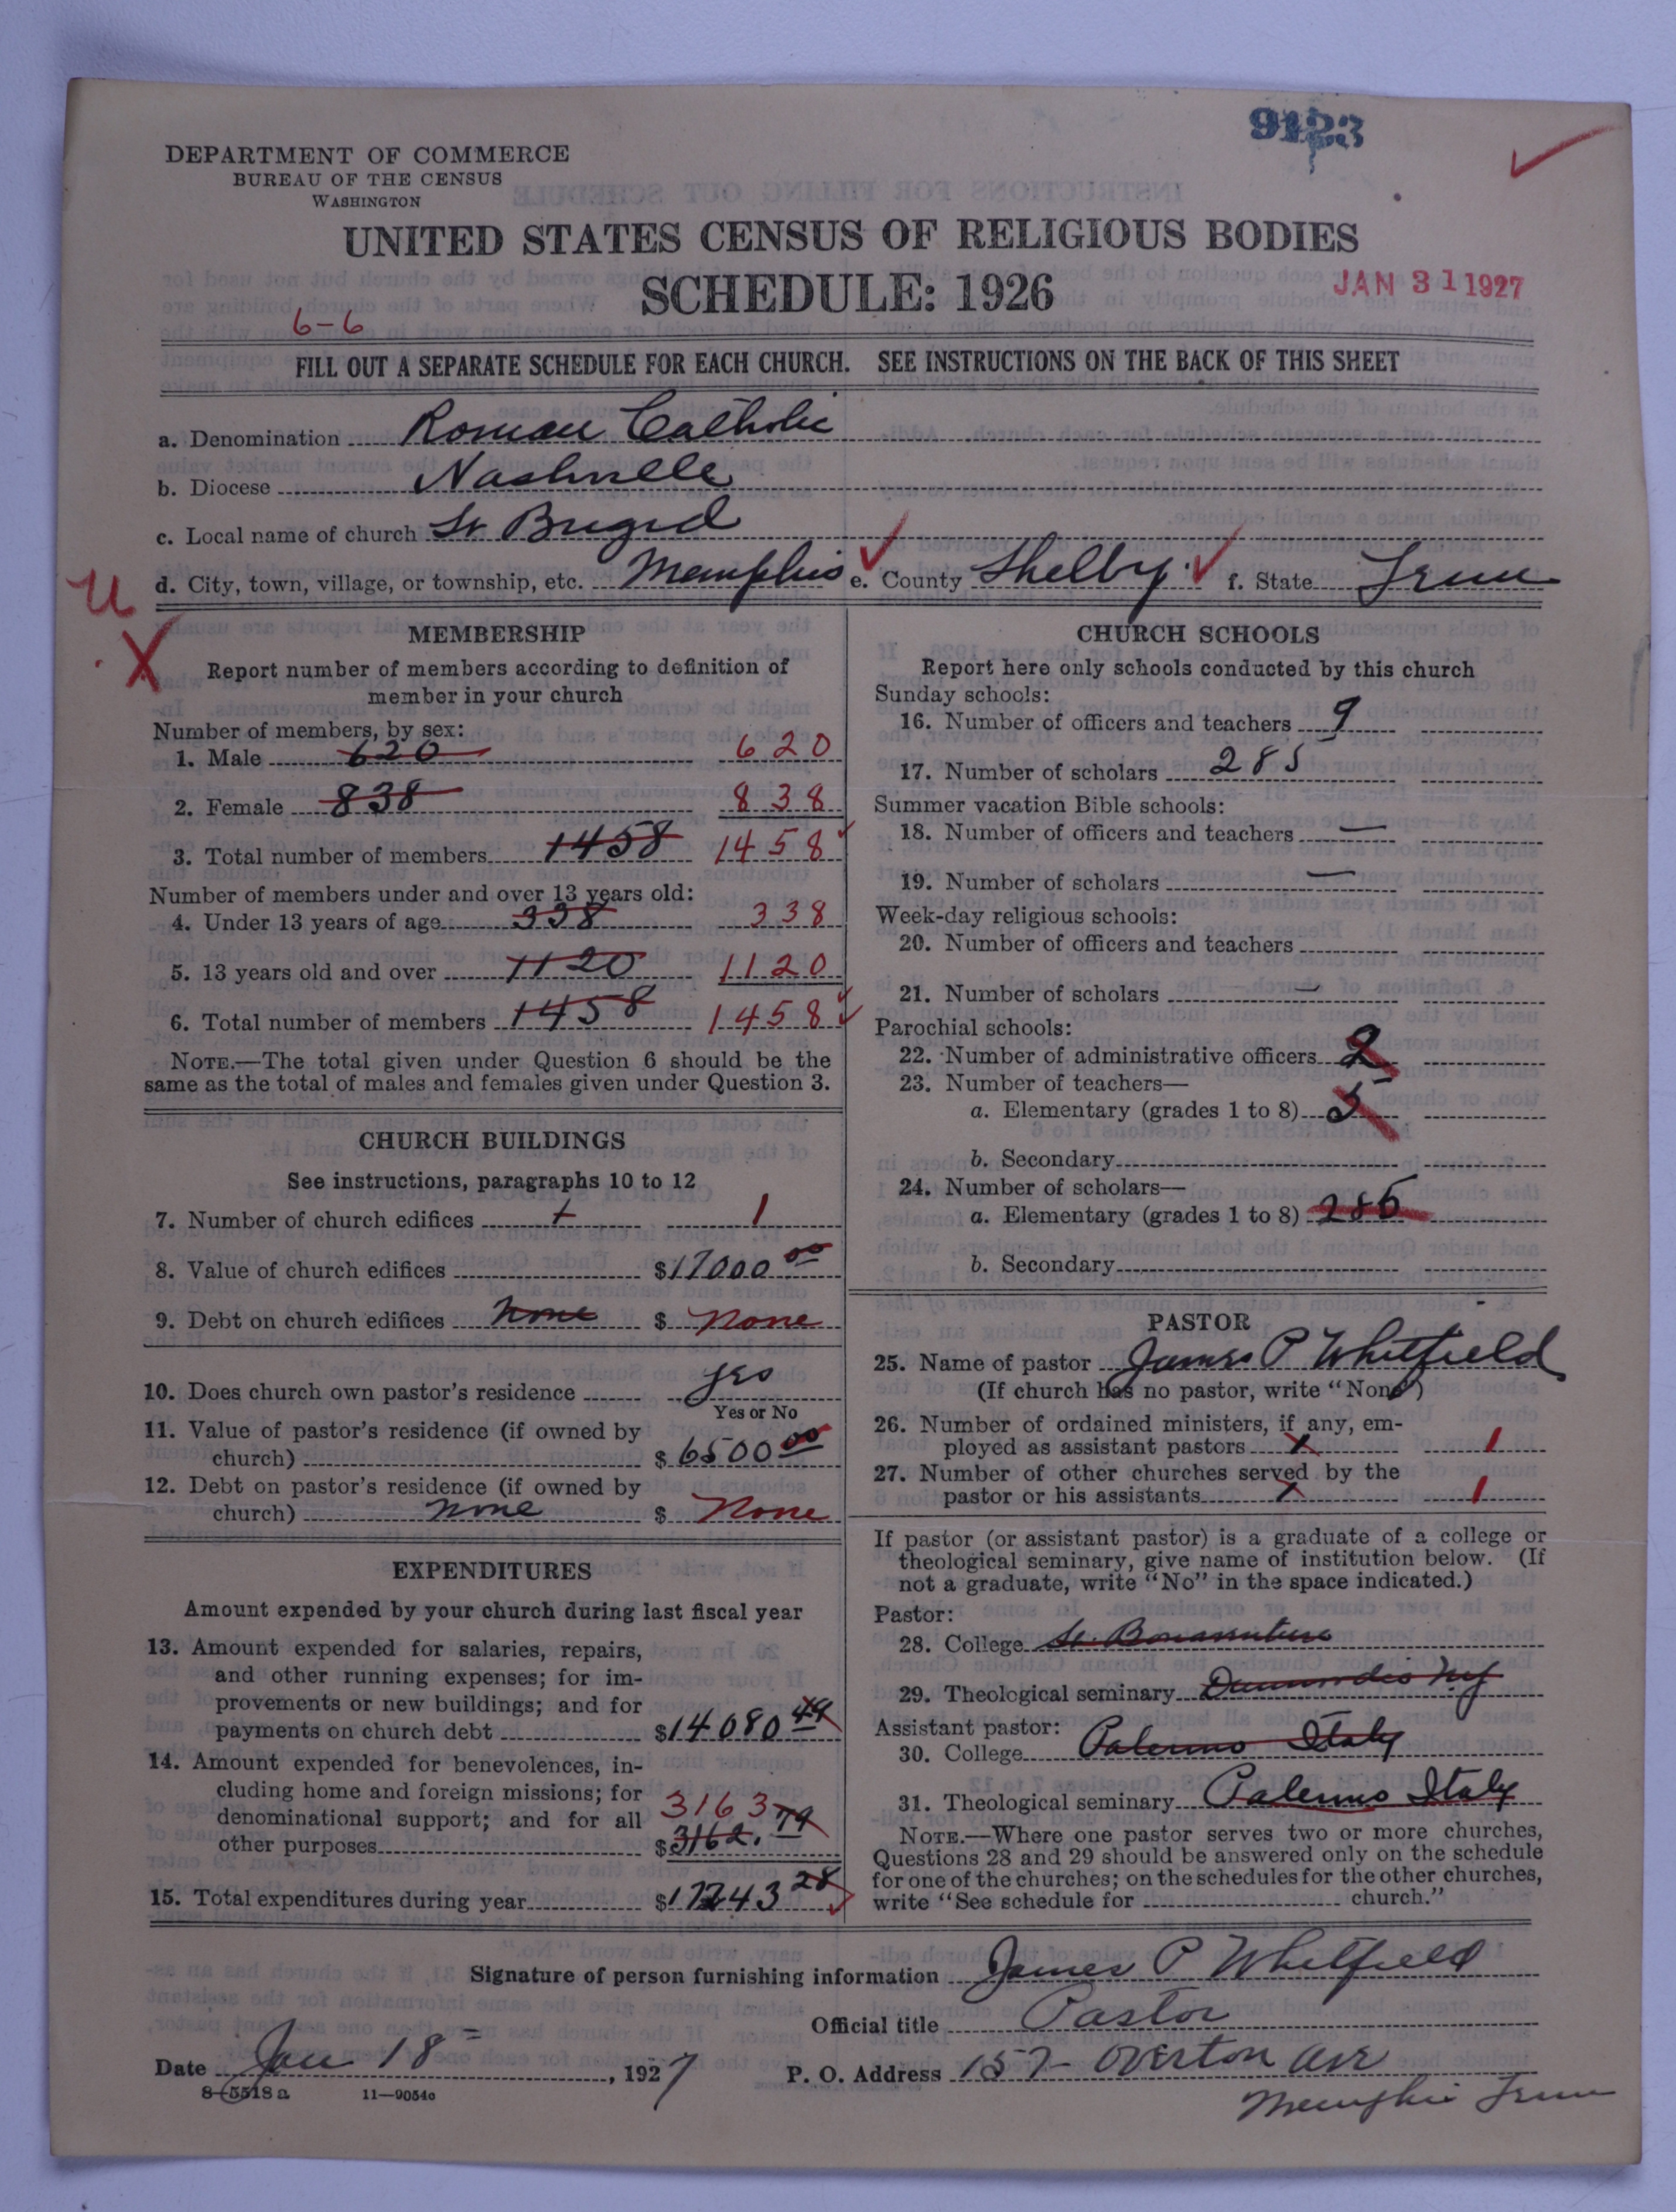 9123
DEPARTMENT OF COMMERCE
BUREAU OF THE CENSUS
WASHINGTON
UNITED STATES CENSUS OF RELIGIOUS BODIES
SCHEDULE: 1926
JAN 31 1927
6-6
FILL OUT A SEPARATE SCHEDULE FOR EACH CHURCH. SEE INSTRUCTIONS ON THE BACK OF THIS SHEET
a. Denomination Roman Catholic
b. Diocese Nashville
c. Local name of church St Brigid
d. City, town, village, or township, etc. Memphis e. County Shelby f. State Tenn
U
X
MEMBERSHIP
Report number of members according to definition of
member in your church
Number of members, by sex:
1. Male 620 620
2. Female 838 838
3. Total number of members 1458 1458
Number of members under and over 13 years old:
4. Under 13 years of age 338 338
5. 13 years old and over 1120 1120
6. Total number of members 1458 1458
NOTE.—The total given under Question 6 should be the
same as the total of males and females given under Question 3.
CHURCH BUILDINGS
See instructions, paragraphs 10 to 12
7. Number of church edifices 1 1
8. Value of church edifices $17000 00
9. Debt on church edifices none $ None
10. Does church own pastor's residence yes
Yes or No
11. Value of pastor's residence (if owned by
church) $6500 00
12. Debt on pastor's residence (if owned by
church) none $ None
EXPENDITURES
Amount expended by your church during last fiscal year
13. Amount expended for salaries, repairs,
and other running expenses; for im-
provements or new buildings; and for
payments on church debt $14080 49
14. Amount expended for benevolences, in-
cluding home and foreign missions; for
denominational support; and for all 3163
other purposes $3162.79
15. Total expenditures during year $17243 28
CHURCH SCHOOLS
Report here only schools conducted by this church
Sunday schools:
16. Number of officers and teachers 9
17. Number of scholars 285
Summer vacation Bible schools:
18. Number of officers and teachers —
19. Number of scholars —
Week-day religious schools:
20. Number of officers and teachers
21. Number of scholars —
Parochial schools:
22. Number of administrative officers 2
23. Number of teachers—
a. Elementary (grades 1 to 8) 5
b. Secondary
24. Number of scholars—
a. Elementary (grades 1 to 8) 285
b. Secondary
PASTOR
25. Name of pastor James P Whitfield
(If church has no pastor, write "None")
26. Number of ordained ministers, if any, em-
ployed as assistant pastors 1 1
27. Number of other churches served by the
pastor or his assistants 1 1
If pastor (or assistant pastor) is a graduate of a college or
theological seminary, give name of institution below. (If
not a graduate, write "No" in the space indicated.)
Pastor:
28. College St. Bonaventure
29. Theological seminary NY
Assistant pastor:
30. College Palermo Italy
31. Theological seminary Palermo Italy
NOTE.—Where one pastor serves two or more churches,
Questions 28 and 29 should be answered only on the schedule
for one of the churches; on the schedules for the other churches,
write "See schedule for church."
Signature of person furnishing information James P Whitfield
Official title Pastor
Date Jan 18, 1927 P. O. Address 157 Overton Ave
8-5518a 11—9054c
Memphis Tenn